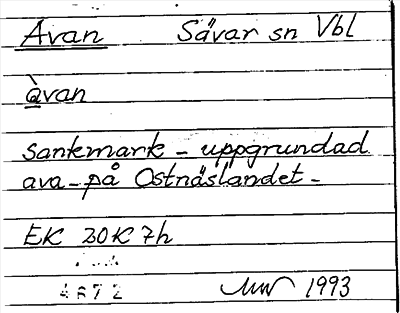 Avan Sävar sn Vbl
àvan
sankmark - uppgrundad
ava - på Ostnäslandet -
EK 20K 7h
4672
1993